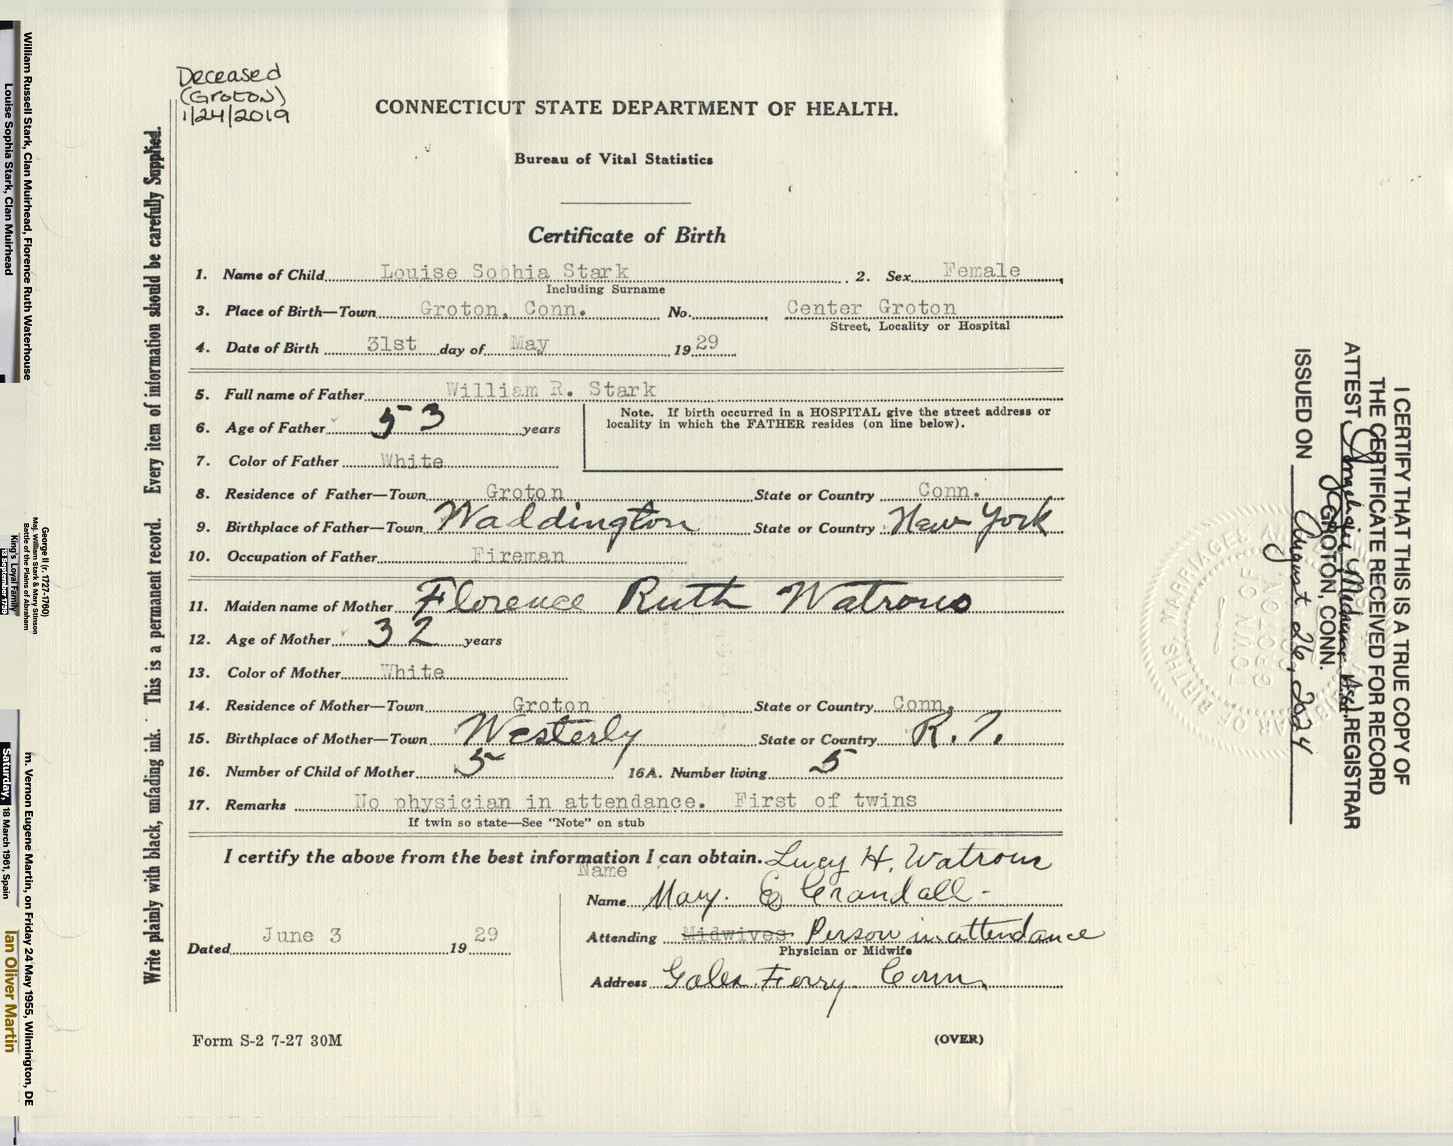 Deceased
(Groton)
1/24/2019
CONNECTICUT STATE DEPARTMENT OF HEALTH.
Bureau of Vital Statistics
Certificate of Birth
1. Name of Child Louise Sophia Stark 2. Sex Female
Including Surname
3. Place of Birth—Town Groton, Conn. No. Center Groton
Street, Locality or Hospital
4. Date of Birth 31st day of May 19 29
5. Full name of Father William R. Stark
6. Age of Father 53 years
Note. If birth occurred in a HOSPITAL give the street address or
locality in which the FATHER resides (on line below).
7. Color of Father White
8. Residence of Father—Town Groton State or Country Conn.
9. Birthplace of Father—Town Waddington State or Country New York
10. Occupation of Father Fireman
11. Maiden name of Mother Florence Ruth Watrous
12. Age of Mother 32 years
13. Color of Mother White
14. Residence of Mother—Town Groton State or Country Conn.
15. Birthplace of Mother—Town Westerly State or Country R.I.
16. Number of Child of Mother 5 16A. Number living 5
17. Remarks No physician in attendance. First of twins
If twin so state—See "Note" on stub
I certify the above from the best information I can obtain. Lucy H. Watrous
Name
Name Mary. E Crandall -
Attending Midwives Person in attendance
Physician or Midwife
Dated June 3 19 29
Address Gales Ferry Conn.
Form S-2 7-27 30M
(OVER)
Write plainly with black, unfading ink. This is a permanent record. Every item of information should be carefully Supplied.
William Russell Stark, Clan Muirhead, Florence Ruth Waterhouse
Louise Sophia Stark, Clan Muirhead
George II (r. 1727-1760)
Maj. William Stark & Mary Stinson
Battle of the Plains of Abraham
King's Loyal Family
13 September 1759
m. Vernon Eugene Martin, on Friday 24 May 1955, Wilmington, DE
Saturday, 18 March 1961, Spain
Ian Oliver Martin
I CERTIFY THAT THIS IS A TRUE COPY OF
THE CERTIFICATE RECEIVED FOR RECORD
ATTEST REGISTRAR
GROTON, CONN.
ISSUED ON August 26, 2024
TOWN OF
GROTON
REGISTRAR OF BIRTHS, MARRIAGES